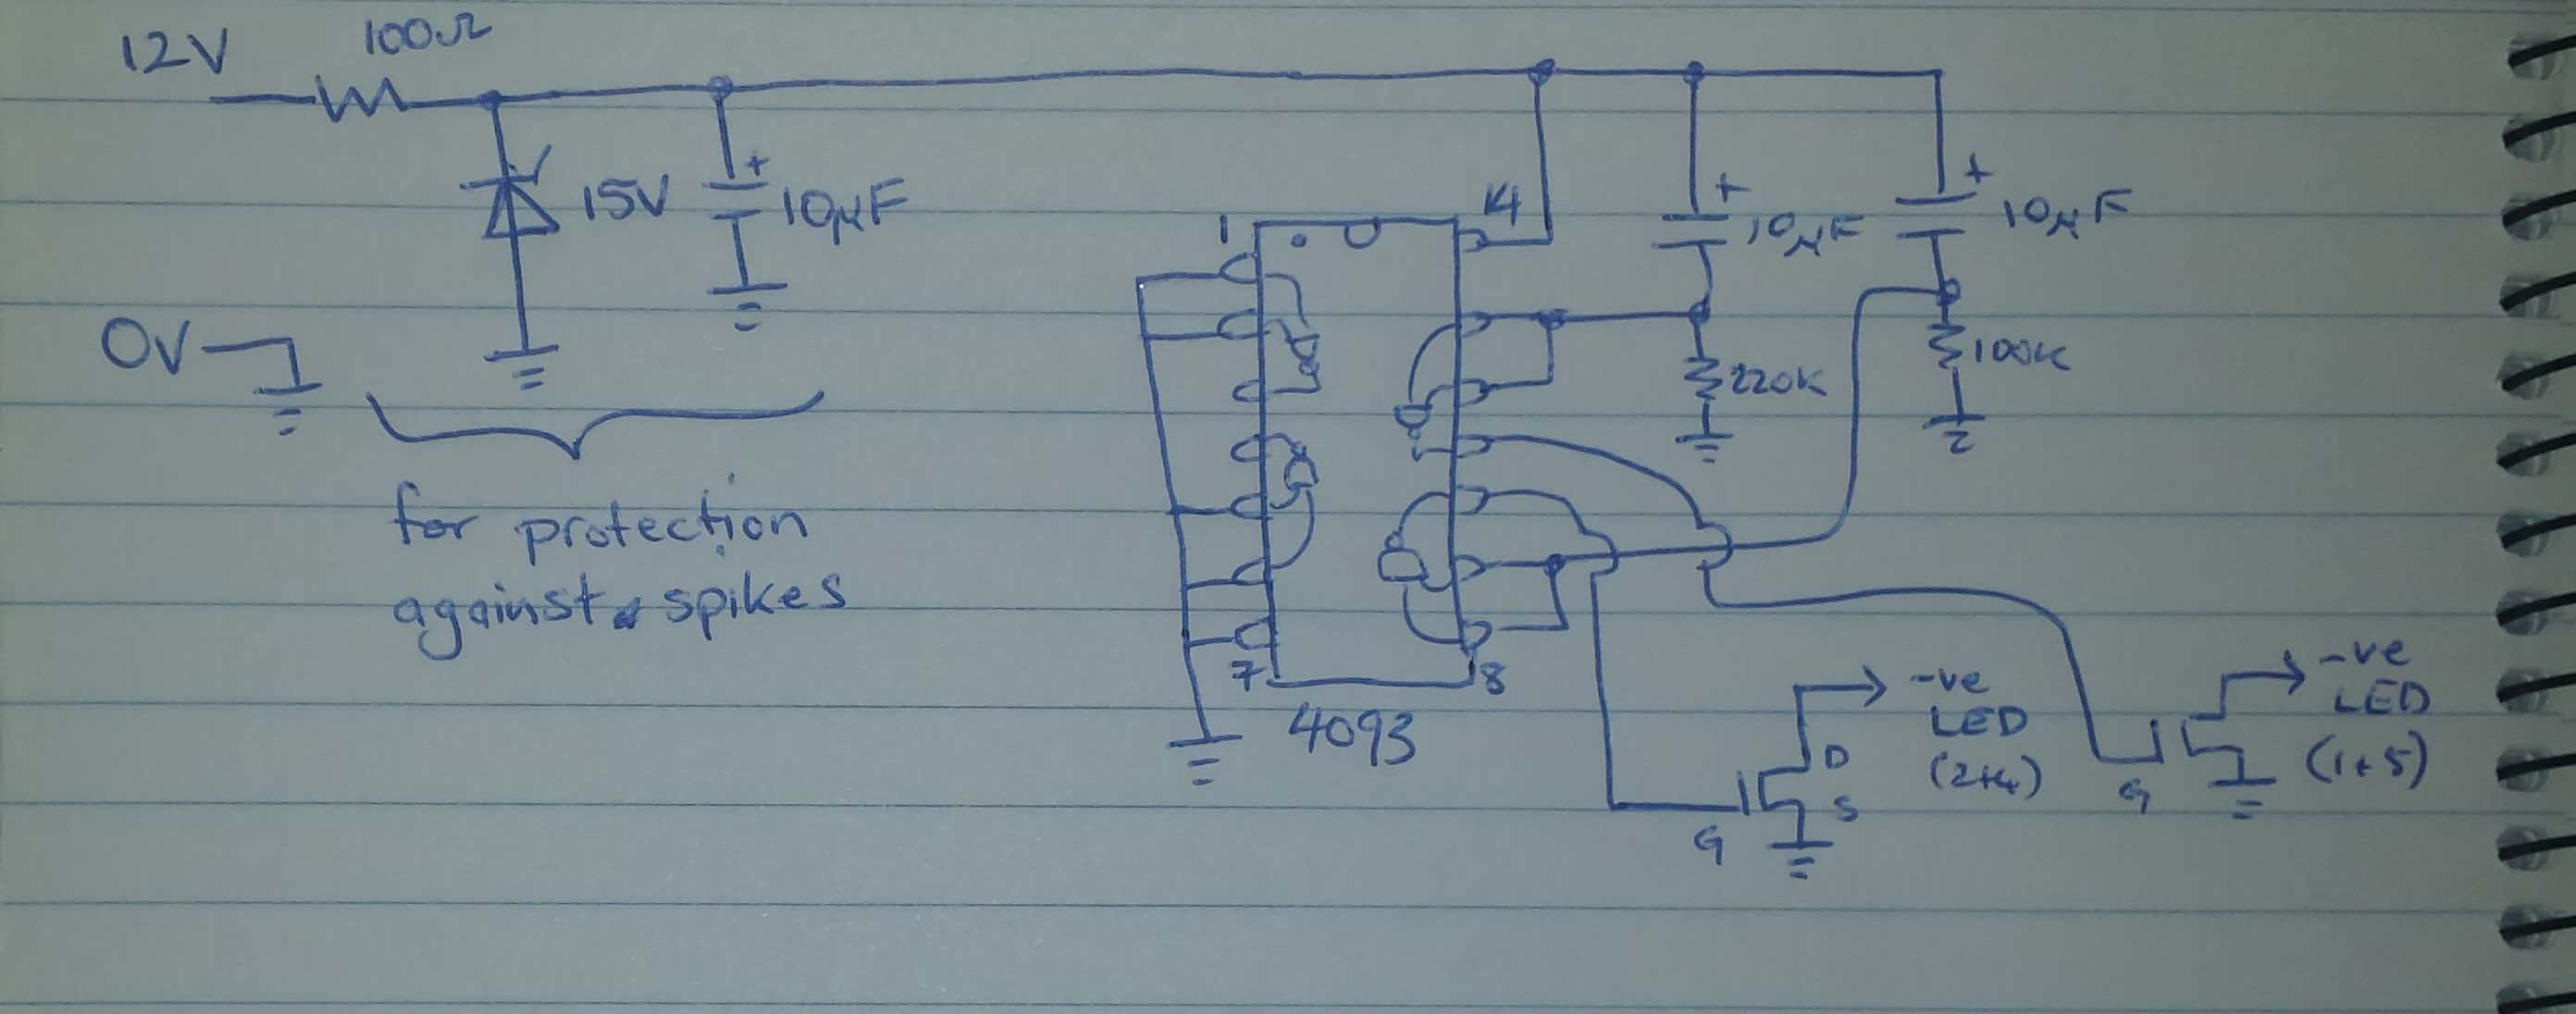 12V
100Ω
15V
+
10µF
0V
for protection
against spikes
1
14
7
8
4093
+
10µF
+
10µF
220K
100K
-ve
LED
(2+4)
D
S
G
-ve
LED
(1+5)
G